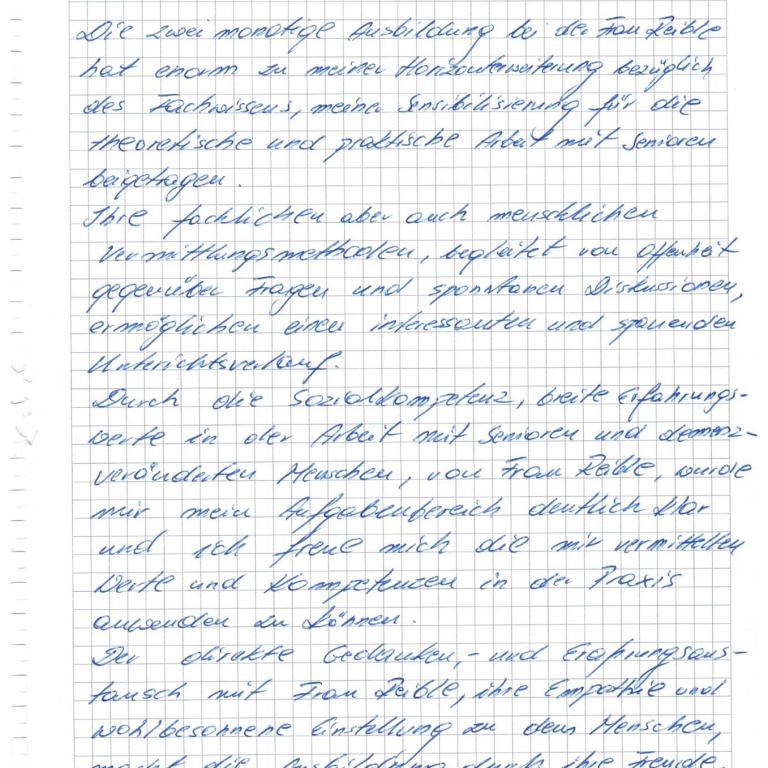 Die zwei monatige Ausbildung bei der Frau Reible
hat enorm zu meiner Horizonterweiterung bezüglich
des Fachwissens, meiner Sensibilisierung für die
theoretische und praktische Arbeit mit Senioren
beigetragen.
Ihre fachlichen aber auch menschlichen
Vermittlungsmethoden, begleitet von Offenheit
gegenüber Fragen und sponntanen Diskussionen,
ermöglichen einen interessanten und spanenden
Unterichtsverlauf.
Durch die Sozialkompetenz, breite Erfahrungs-
werte in der Arbeit mit Senioren und demenz-
veränderten Menschen, von Frau Reible, wurde
mir mein Aufgabenbereich deutlich klar
und ich freue mich die mir vermittelten
Werte und Kompetenzen in der Praxis
anwenden zu können.
Der direkte Gedanken,- und Erfahrungsaus-
tausch mit Frau Reible, ihre Empathie und
wohlbesonnene Einstellung zu dem Menschen,
macht die Ausbildung durch ihre Freude,